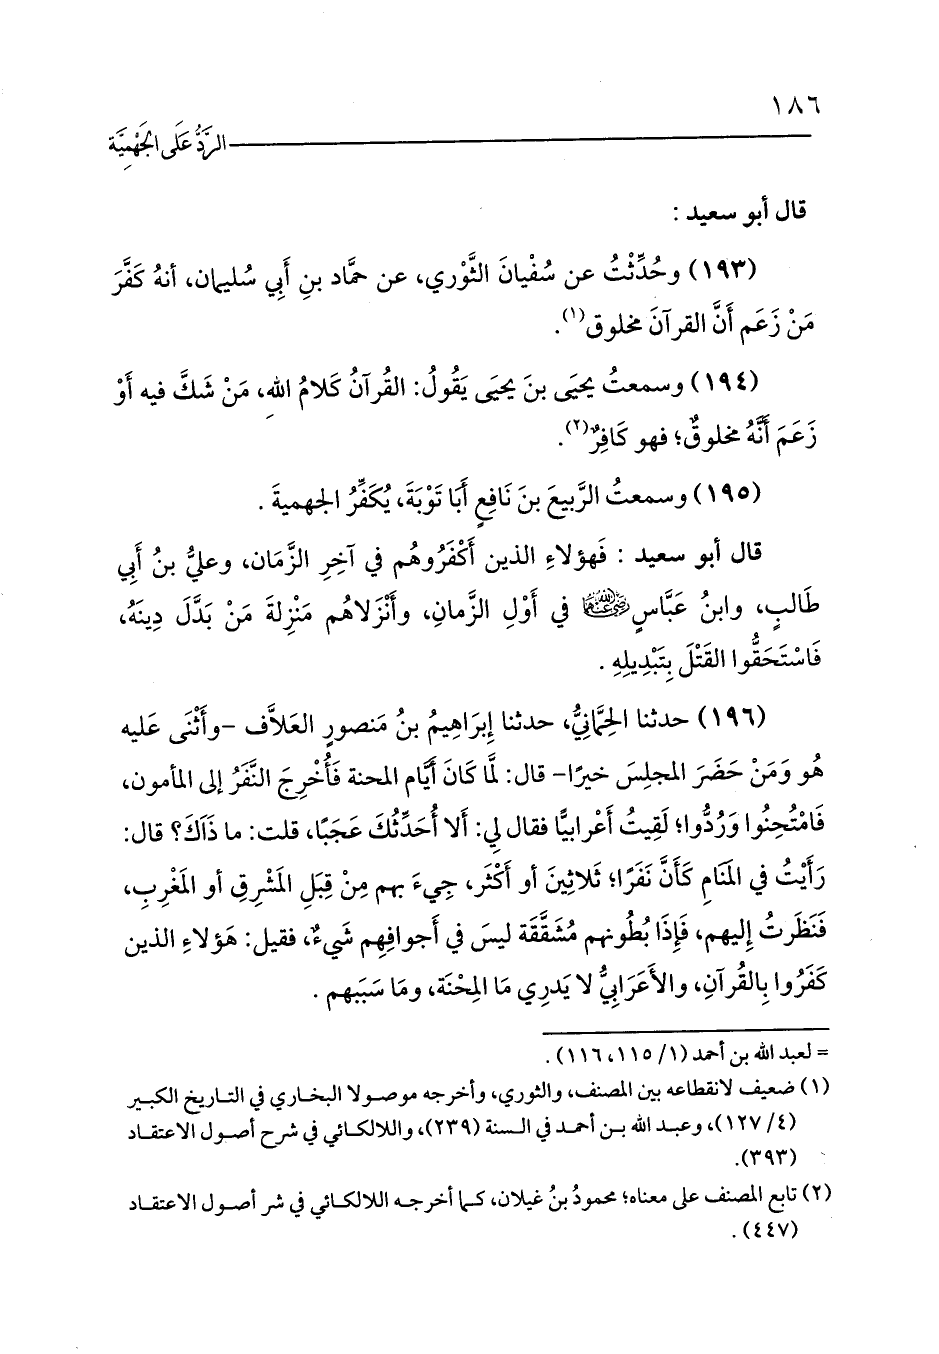 ١٨٦
الرَّدُّ عَلَى الجَهْمِيَّة
قال أبو سعيد :
(١٩٣) وحُدِّثْتُ عن سُفْيانَ الثَّوْري، عن حمَّاد بنِ أَبِي سُليمان، أنهُ كَفَّرَ
مَنْ زَعَم أَنَّ القرآنَ مخلوق(١).
(١٩٤) وسمعتُ يحيَى بنَ يحيَى يَقُولُ: القُرآنُ كَلامُ اللهِ، مَنْ شَكَّ فيه أَوْ
زَعَمَ أَنَّهُ مخلوقٌ؛ فهو كَافِرٌ(٢).
(١٩٥) وسمعتُ الرَّبيعَ بنَ نَافِعٍ أَبَا تَوْبَةَ، يُكَفِّرُ الجهميةَ .
قال أبو سعيد : فَهؤلاءِ الذين أَكْفَرُوهُم في آخِرِ الزَّمَان، وعليُّ بنُ أَبِي
طَالبٍ، وابنُ عَبَّاسٍ رضي الله عنهما في أَوْلِ الزَّمانِ، وأَنْزَلاهُم مَنْزِلةَ مَنْ بَدَّلَ دِينَهُ،
فَاسْتَحَقُّوا القَتْلَ بِتَبْدِيلِهِ .
(١٩٦) حدثنا الحِمَّانِيُّ، حدثنا إبرَاهِيمُ بنُ مَنصورٍ العَلاَّف –وأَثْنَى عَليه
هُو وَمَنْ حَضَرَ المجلِسَ خيرًا– قال: لمَّا كَانَ أيَّام المحنة فَأُخْرِجَ النَّفَرُ إلى المأمون،
فَامْتُحِنُوا وَرُدُّوا؛ لَقِيتُ أَعْرابيًّا فقال لِي: أَلا أُحَدِّثُكَ عَجَبًا، قلت: ما ذَاكَ؟ قال:
رَأَيْتُ في المَنَامِ كَأَنَّ نَفَرًا؛ ثَلاثِينَ أو أَكْثَر، جِيءَ بهم مِنْ قِبَلِ المَشْرِقِ أو المَغْرِبِ،
فَنَظَرتُ إِليهم، فَإِذَا بُطُونهم مُشَقَّقَة ليسَ في أَجوافِهِم شَيءٌ، فقيل: هَؤلاءِ الذين
كَفَرُوا بِالقُرآنِ، والأَعَرَابِيُّ لا يَدرِي مَا المِحْنَة، ومَا سَبَبهم .
= لعبد الله بن أحمد (١/ ١١٥، ١١٦).
(١) ضعيف لانقطاعه بين المصنف، والثوري، وأخرجه موصولا البخاري في التاريخ الكبير
(٤/ ١٢٧)، وعبد الله بن أحمد في السنة (٢٣٩)، واللالكائي في شرح أصول الاعتقاد
(٣٩٣).
(٢) تابع المصنف على معناه؛ محمودُ بنُ غيلان، كما أخرجه اللالكائي في شر أصول الاعتقاد
(٤٤٧).